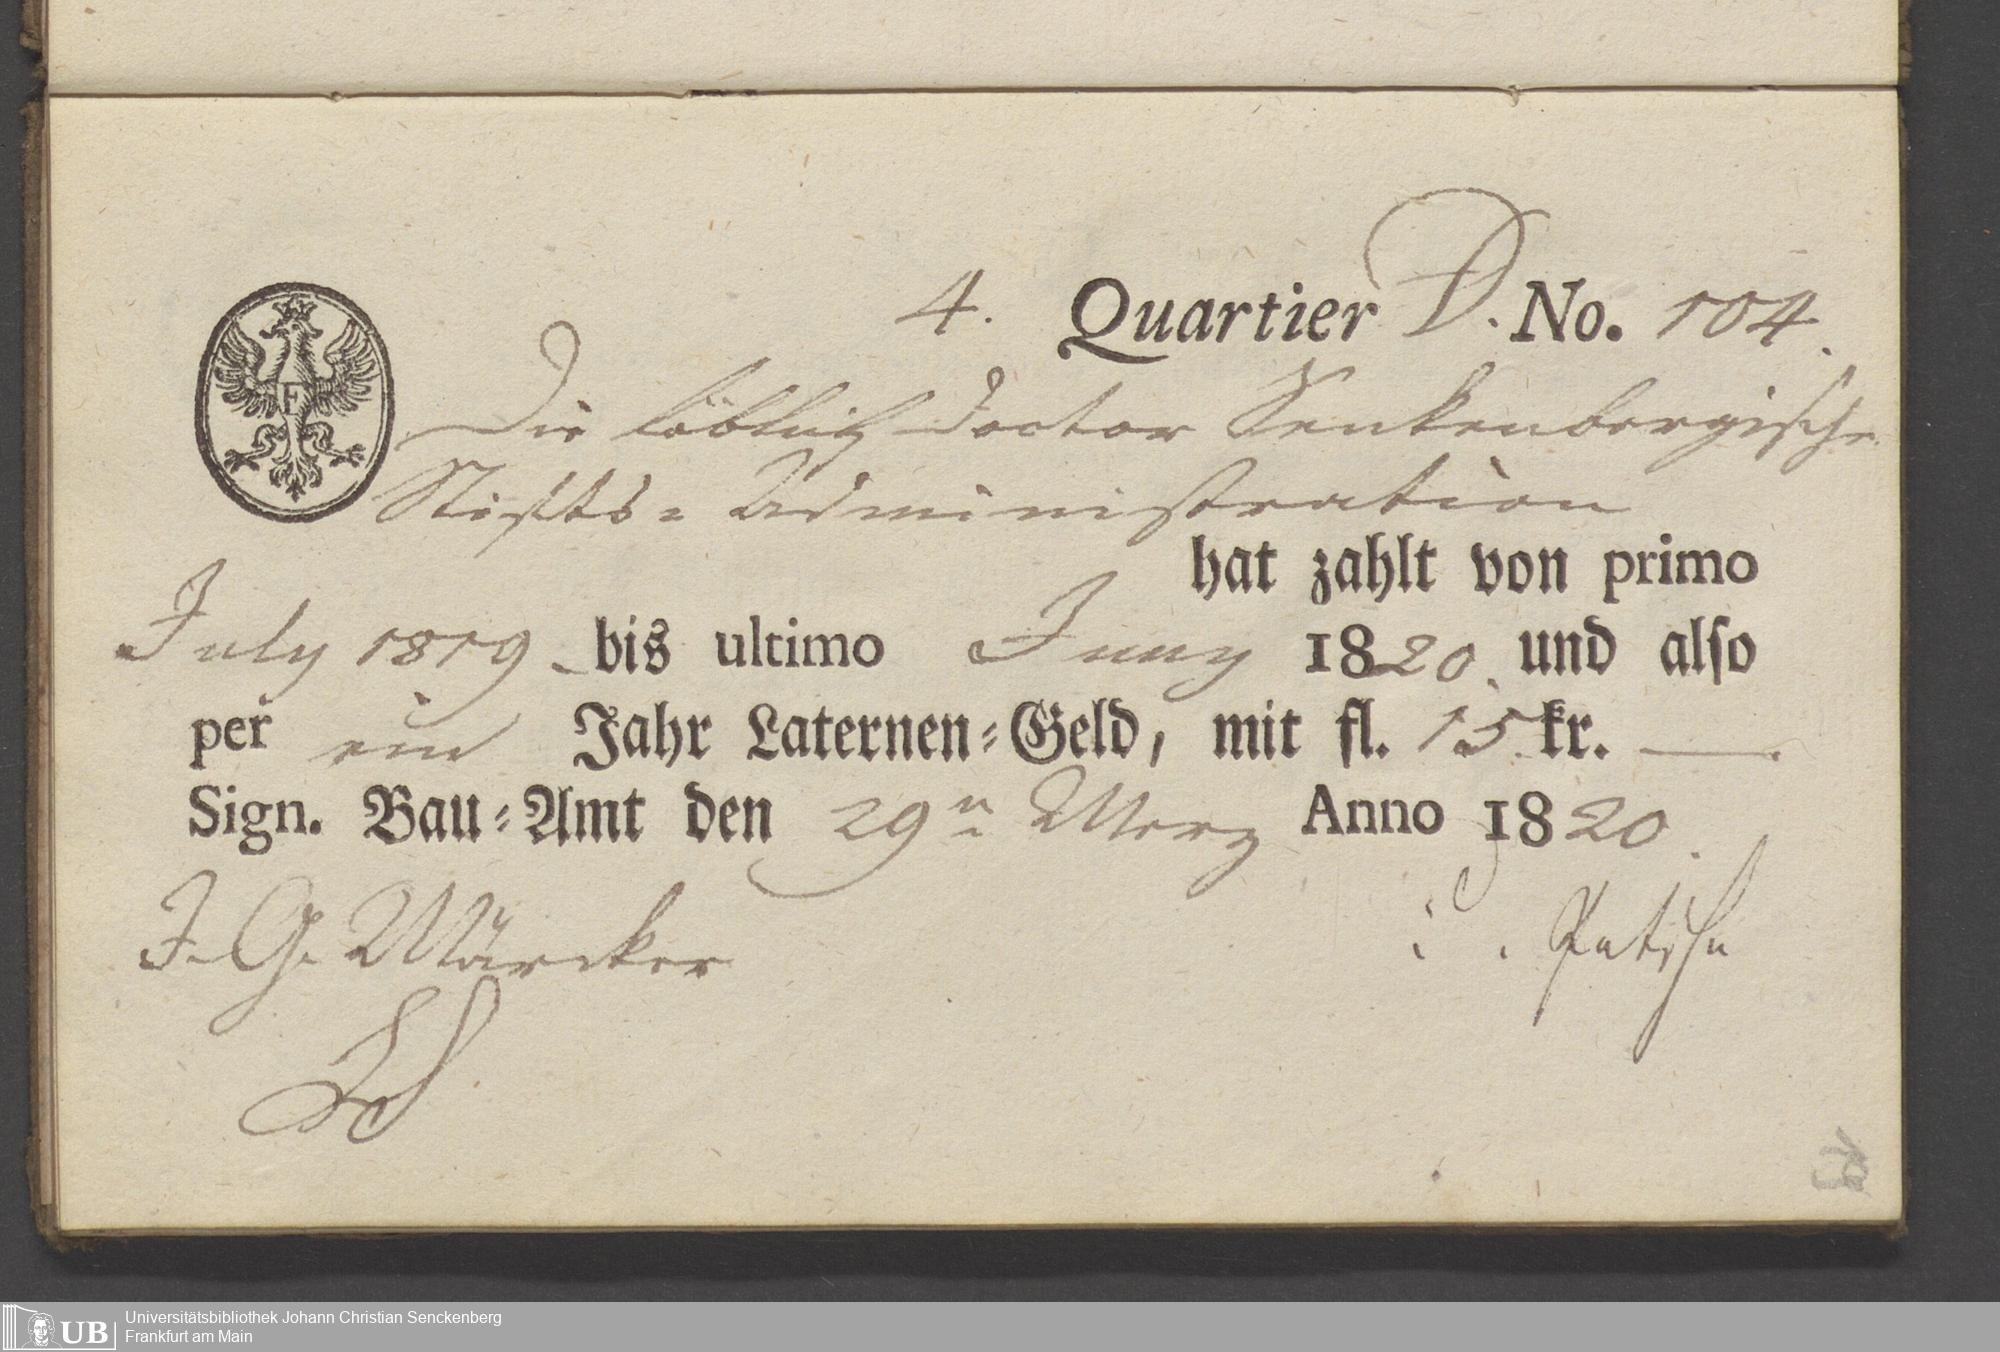 4. Quartier D. No. 104.
Die löblich Doctor Senkenbergische
Stifts= Administration
hat zahlt von primo
July 1819 bis ultimo Juny 1820. und also
per ein Jahr Laternen=Geld, mit fl. 15 kr.
Sign. Bau=Amt den 29n Merz Anno 1820.
J. G. Märcker
F
UB
Universitätsbibliothek Johann Christian Senckenberg
Frankfurt am Main